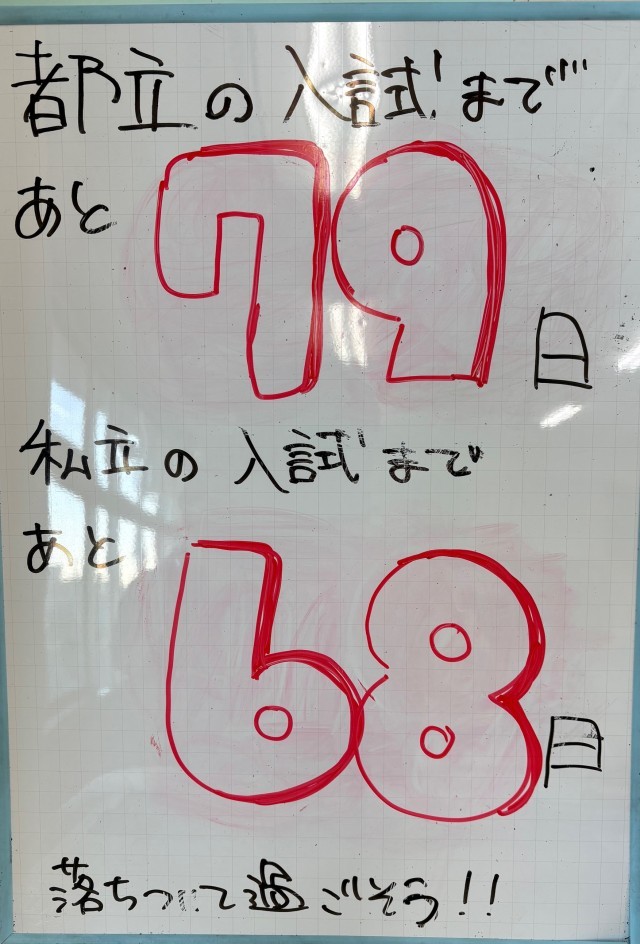 都立の入試まで
あと79日
私立の入試まで
あと68日
落ちついて過ごそう!!